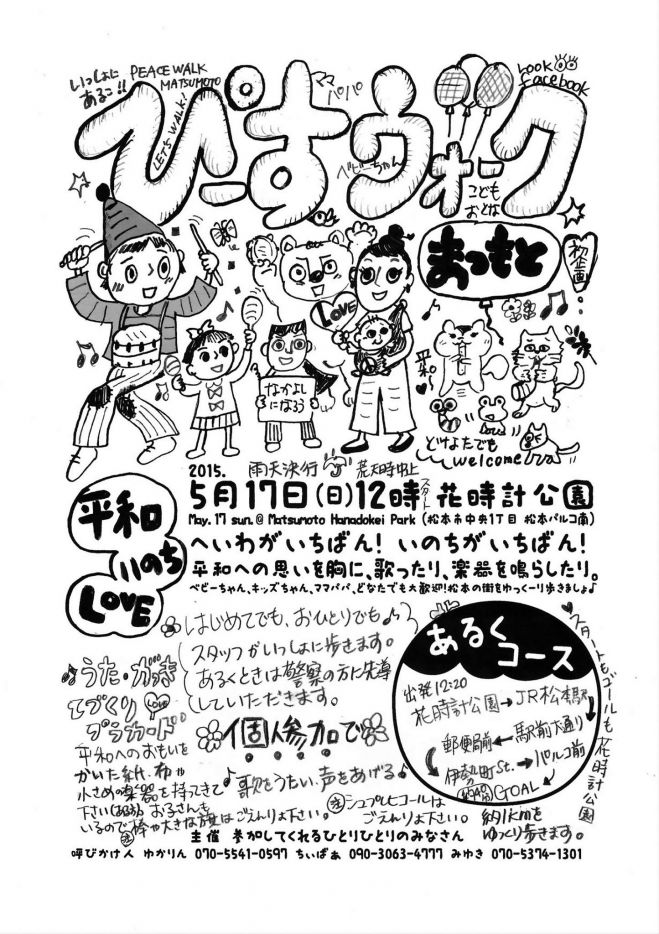 いっしょに
あるこ!!
PEACE WALK
MATSUMOTO
LET'S WALK!
Look
Facebook
ぴーすウォーク
ママ
パパ
ベビーちゃん
こども
おとな
まつもと
初企画
LOVE
なかよし
になろう
平和〜
どなたでも
welcome
2015.
雨天決行
荒天時中止
5月17日(日)12時スタート 花時計公園
May. 17 sun. @ Matsumoto Hanadokei Park (松本市中央1丁目 松本パルコ南)
へいわがいちばん! いのちがいちばん!
平和への思いを胸に、歌ったり、楽器を鳴らしたり。
ベビーちゃん、キッズちゃん、ママパパ、どなたでも大歓迎!松本の街をゆっくーり歩きましょ♪
平和
いのち
LOVE
はじめてでも、おひとりでも♪
スタッフがいっしょに歩きます。
あるくときは警察の方に先導
していただきます。
♪うた・ガッキ
てづくり
プラカード
平和へのおもいを
かいた紙、布や
小さめの楽器を持ってきて
下さい
お子さんも
いるので棒や大きな旗はごえんりょ下さい。
個人参加で
♪歌をうたい、声をあげる♪
シュプレヒコールは
ごえんりょ下さい。
あるく
コース
出発12:20
花時計公園→JR松本駅
駅前大通り
郵便局前
伊勢町St.→パルコ前
GOAL
スタートもゴールも花時計公園
約1kmを
ゆっくり歩きます。
主催 参加してくれるひとりひとりのみなさん
呼びかけ人 ゆかりん 070-5541-0597 ちぃばぁ 090-3063-4777 みゆき 070-5374-1301